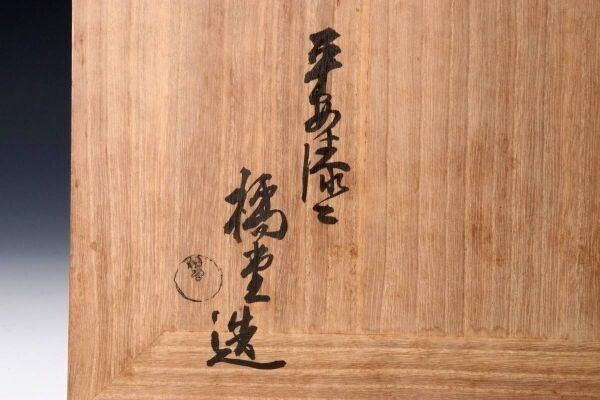 平安漆工
橘堂造